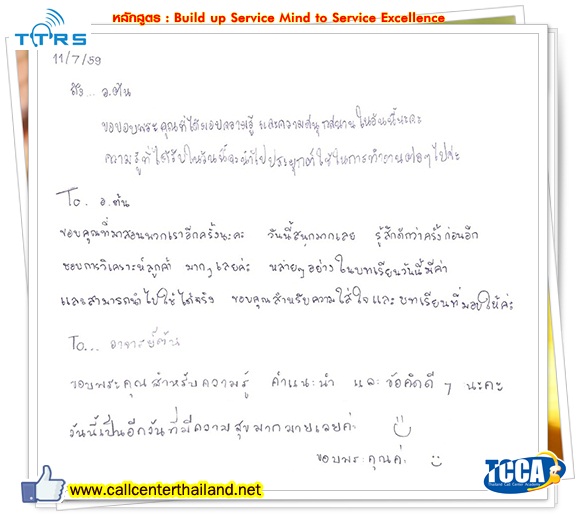 หลักสูตร : Build up Service Mind to Service Excellence
TTRS
11/7/59
ถึง... อ.ต้น
ขอขอบพระคุณที่ได้มอบความรู้ และความสนุกสนานในวันนี้นะคะ
ความรู้ที่ได้รับในวันนี้จะนำไปประยุกต์ใช้ในการทำงานต่อๆไปค่ะ
To. อ.ต้น
ขอบคุณที่มาสอนพวกเราอีกครั้งนะคะ วันนี้สนุกมากเลย รู้สึกดีกว่าครั้งก่อนอีก
ชอบการวิเคราะห์ลูกค้า มากๆเลยค่ะ หลายๆอย่างในบทเรียนวันนี้มีค่า
และสามารถนำไปใช้ได้จริง ขอบคุณสำหรับความใส่ใจและบทเรียนที่มอบให้ค่ะ
To... อาจารย์ต้น
ขอบพระคุณสำหรับความรู้ คำแนะนำ และข้อคิดดี ๆ นะคะ
วันนี้เป็นอีกวันที่มีความสุขมากมายเลยค่ะ
ขอบพระคุณค่ะ
www.callcenterthailand.net
TCCA
Thailand Call Center Academy